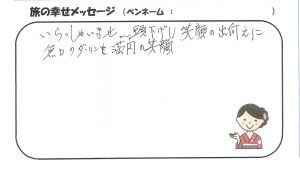 旅の幸せメッセージ （ペンネーム： ）
いらっしゃいませ 頭下げし 笑顔の出向えに
無口のダーリンも 満円の笑顔